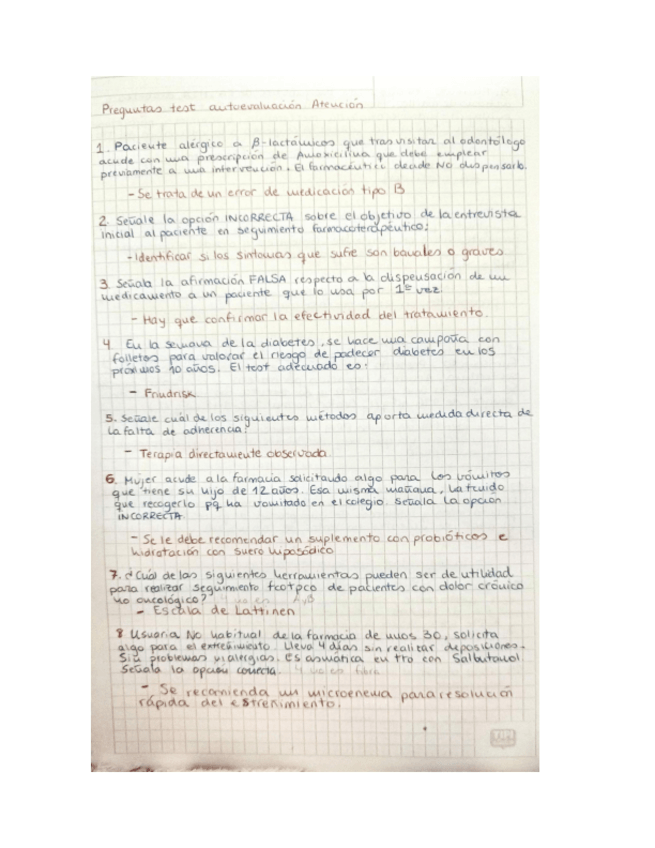 Preguntas test autoevaluación Atención
1. Paciente alérgico a β-lactámicos que tras visitar al odontólogo
acude con una prescripción de Amoxicilina que debe emplear
previamente a una intervención. El farmacéutico decide NO dispensarlo.
- Se trata de un error de medicación tipo B
2. Señale la opción INCORRECTA sobre el objetivo de la entrevista
inicial al paciente en seguimiento farmacoterapéutico:
- Identificar si los síntomas que sufre son banales o graves
3. Señala la afirmación FALSA respecto a la dispensación de un
medicamento a un paciente que lo usa por 1ª vez
- Hay que confirmar la efectividad del tratamiento.
4. En la semana de la diabetes, se hace una campaña con
folletos para valorar el riesgo de padecer diabetes en los
próximos 10 años. El test adecuado es:
- Findrisk
5. Señale cuál de los siguientes métodos aporta medida directa de
la falta de adherencia:
- Terapia directamente observada
6. Mujer acude a la farmacia solicitando algo para los vómitos
que tiene su hijo de 12 años. Esa misma mañana, ha tenido
que recogerlo pq ha vomitado en el colegio. Señala la opción
INCORRECTA
- Se le debe recomendar un suplemento con probióticos e
hidratación con suero hiposódico
7. ¿Cuál de las siguientes herramientas pueden ser de utilidad
para realizar seguimiento fcotpco de pacientes con dolor crónico
no oncológico?
- Escala de Lattinen
8 Usuaria No habitual de la farmacia de unos 30, solicita
algo para el estreñimiento. Lleva 4 días sin realizar deposiciones.
Sin problemas ni alergias. Es asmática en tto con Salbutamol.
Señala la opción correcta.
- Se recomienda un microenema para resolución
rápida del estreñimiento.